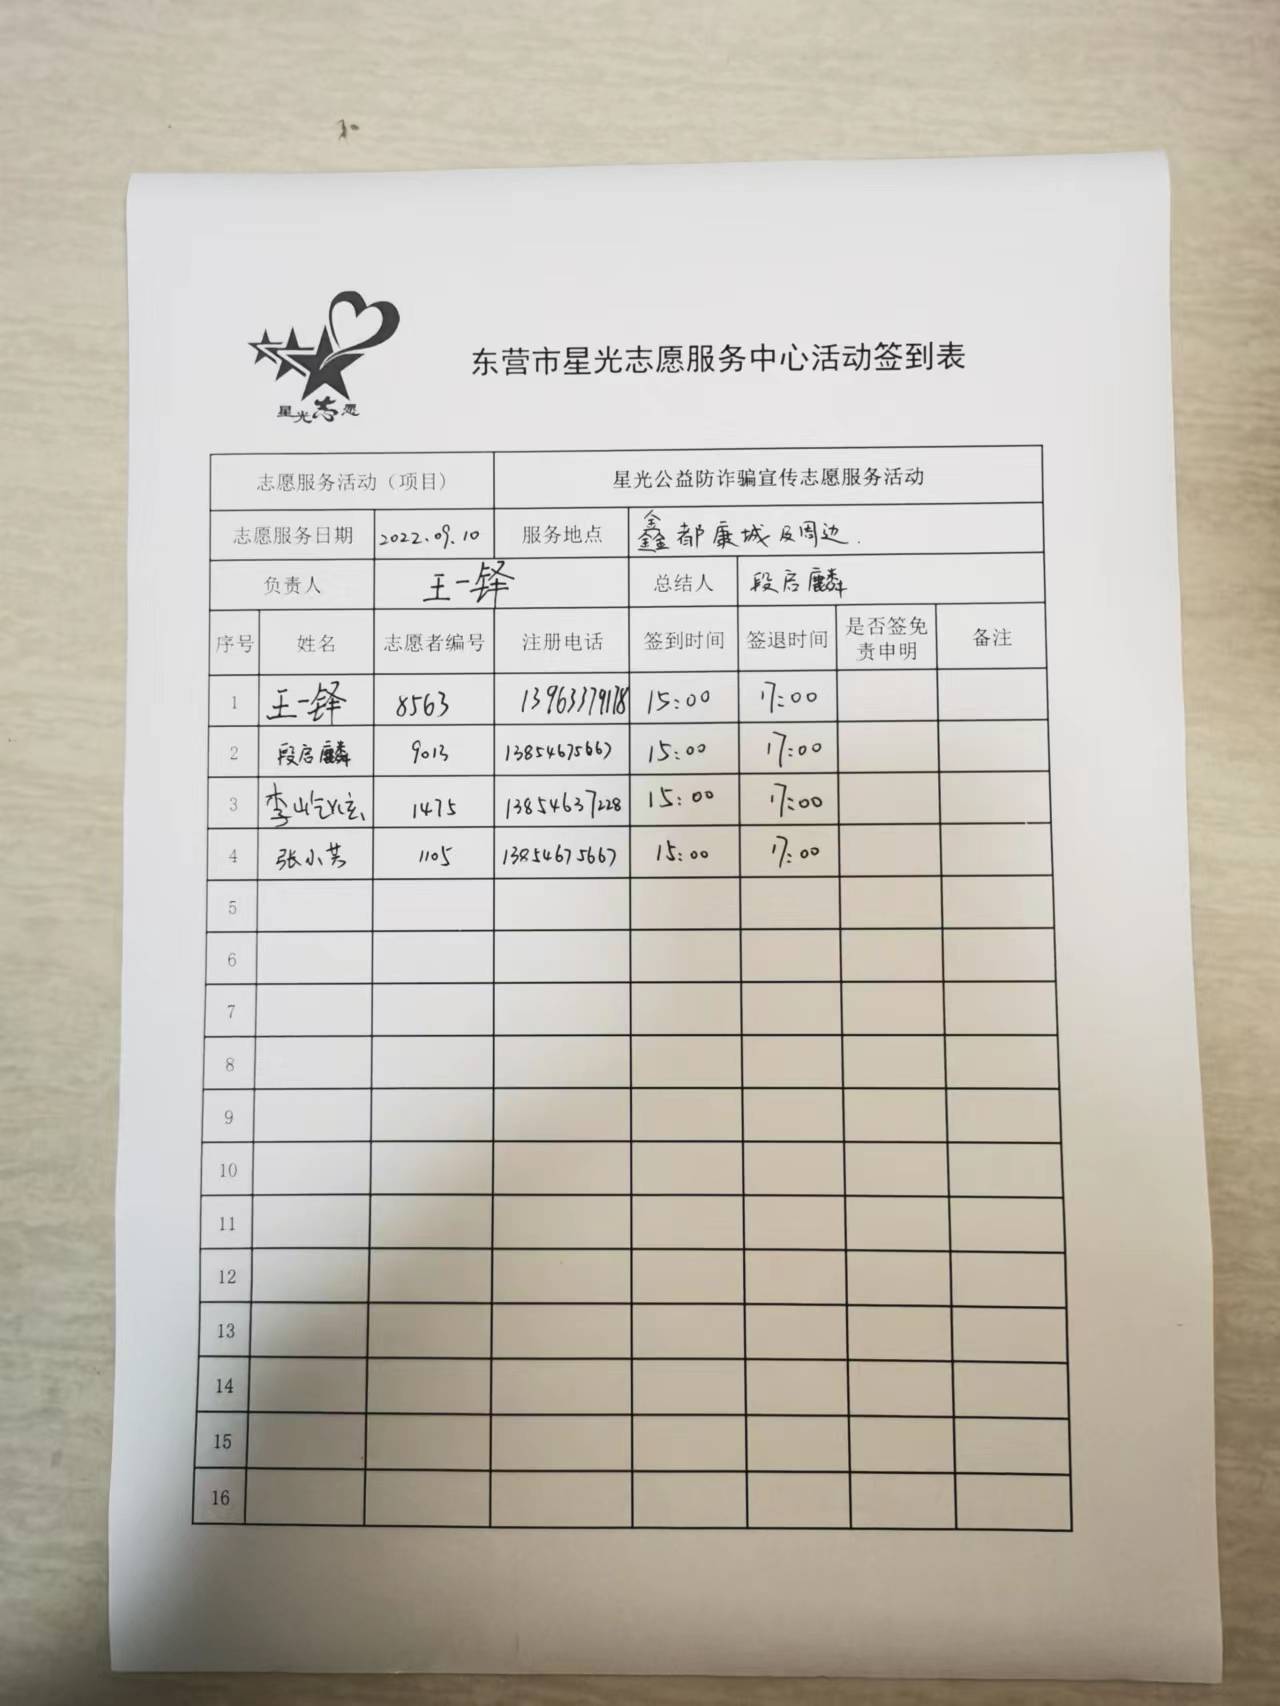 星光志愿
东营市星光志愿服务中心活动签到表
志愿服务活动（项目） 星光公益防诈骗宣传志愿服务活动
志愿服务日期 2022.09.10 服务地点 鑫都康城及周边.
负责人 王一铎 总结人 段启麟
序号 姓名 志愿者编号 注册电话 签到时间 签退时间 是否签免责申明 备注
1 王一铎 8563 13963379178 15:00 17:00
2 段启麟 9013 13854675667 15:00 17:00
3 1475 13854637228 15:00 17:00
4 张小芸 1105 13854675667 15:00 17:00
5
6
7
8
9
10
11
12
13
14
15
16